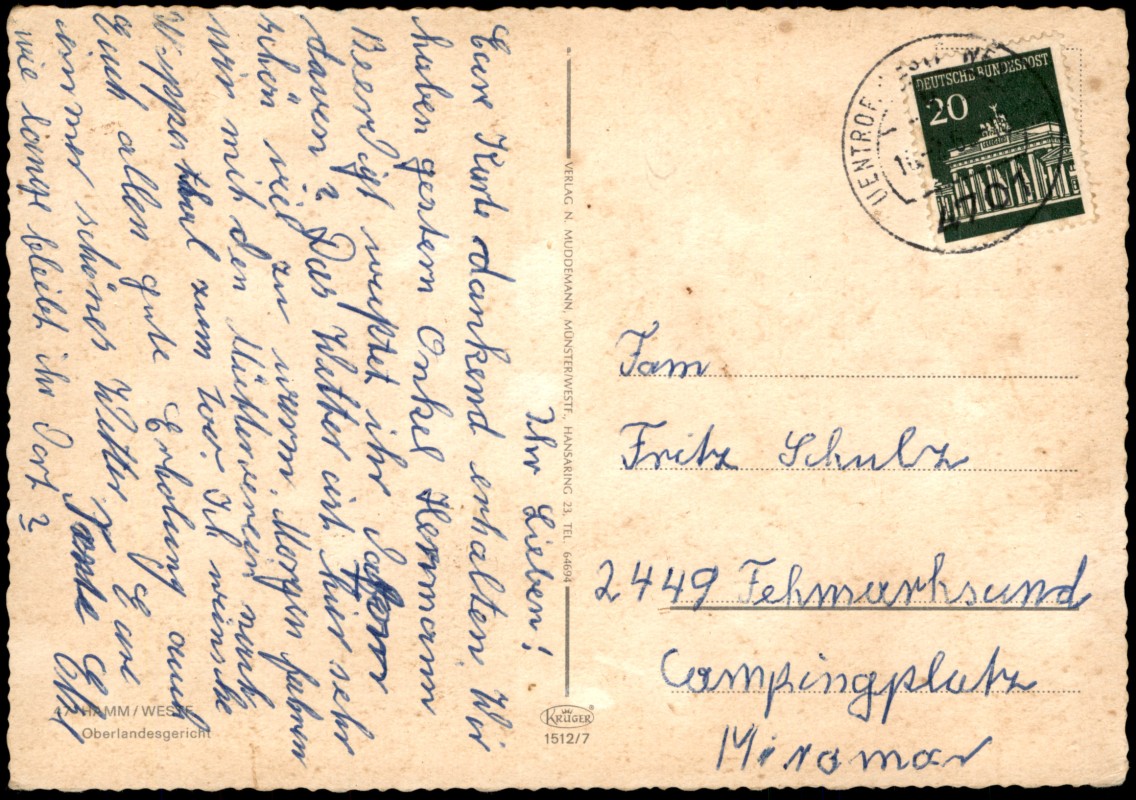 Ihr Lieben!
Eure Karte dankend erhalten. Wir
haben gestern Onkel Hermann
Beerdigt wußtet ihr
daven? Das Wetter ist hier sehr
schön viel zu warm. Morgen fahren
wir mit den Mütterverein nach
Wuppertal zum Zoo. Ich wünsche
Euch allen gute Erholung auch
immer schönes Wetter Eure
Tante Else
wie lange bleibt ihr Dort?
47 HAMM / WESTF.
Oberlandesgericht
VERLAG N. MUDDEMANN, MÜNSTER/WESTF., HANSARING 23, TEL. 64694
KRÜGER
1512/7
DEUTSCHE BUNDESPOST
20
UENTROP
4701
Fam
Fritz Schulz
2449 Fehmarksund
Campingplatz
Miramar